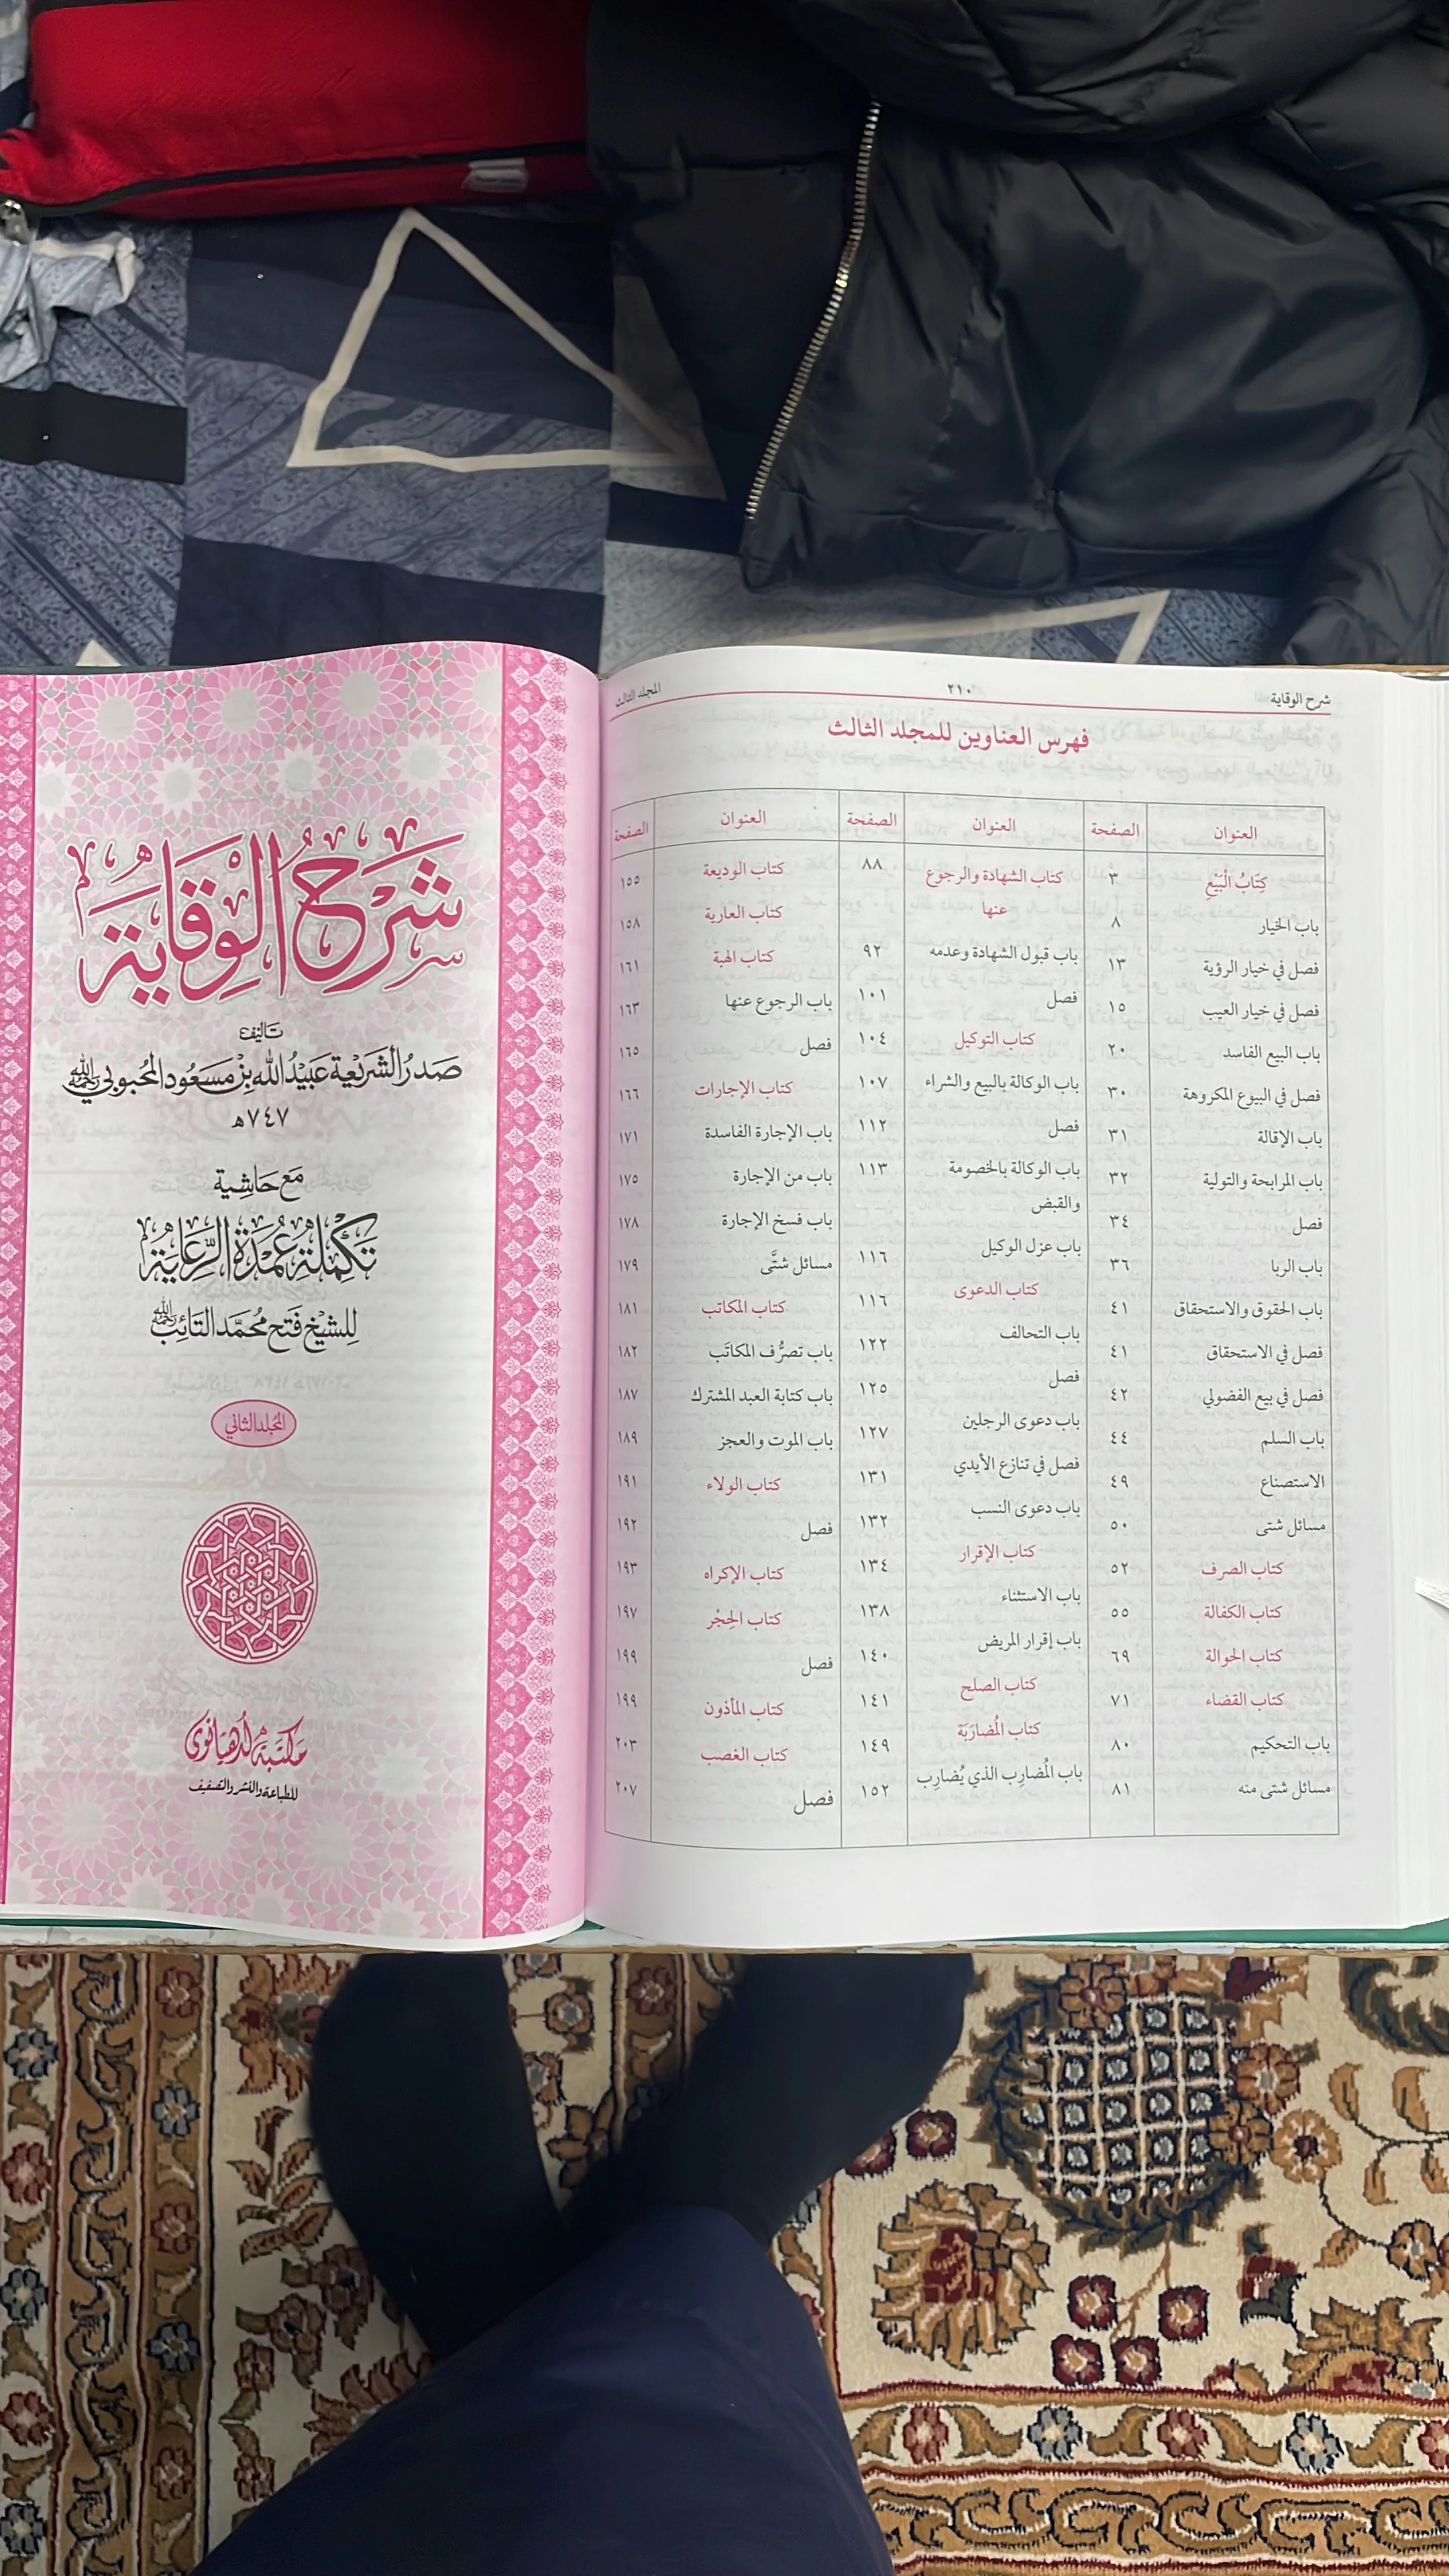 شرح الوقاية ٢١٠ المجلد الثالث
فهرس العناوين للمجلد الثالث
العنوان الصفحة العنوان الصفحة العنوان الصفحة
كِتَابُ الْبَيْعِ ٣
باب الخيار ٨
فصل في خيار الرؤية ١٣
فصل في خيار العيب ١٥
باب البيع الفاسد ٢٠
فصل في البيوع المكروهة ٣٠
باب الإقالة ٣١
باب المرابحة والتولية ٣٢
فصل ٣٤
باب الربا ٣٦
باب الحقوق والاستحقاق ٤١
فصل في الاستحقاق ٤١
فصل في بيع الفضولي ٤٢
باب السلم ٤٤
الاستصناع ٤٩
مسائل شتى ٥٠
كتاب الصرف ٥٢
كتاب الكفالة ٥٥
كتاب الحوالة ٦٩
كتاب القضاء ٧١
باب التحكيم ٨٠
مسائل شتى منه ٨١
كتاب الشهادة والرجوع ٨٨
عنها
باب قبول الشهادة وعدمه ٩٢
فصل ١٠١
كتاب التوكيل ١٠٤
باب الوكالة بالبيع والشراء ١٠٧
فصل ١١٢
باب الوكالة بالخصومة ١١٣
والقبض
باب عزل الوكيل ١١٦
كتاب الدعوى ١١٦
باب التحالف ١٢٢
فصل ١٢٥
باب دعوى الرجلين ١٢٧
فصل في تنازع الأيدي ١٣١
باب دعوى النسب ١٣٢
كتاب الإقرار ١٣٤
باب الاستثناء ١٣٨
باب إقرار المريض ١٤٠
كتاب الصلح ١٤١
كتاب المُضارَبَة ١٤٩
باب المُضارِب الذي يُضارِب ١٥٢
كتاب الوديعة ١٥٥
كتاب العارية ١٥٨
كتاب الهبة ١٦١
باب الرجوع عنها ١٦٣
فصل ١٦٥
كتاب الإجارات ١٦٦
باب الإجارة الفاسدة ١٧١
باب من الإجارة ١٧٥
باب فسخ الإجارة ١٧٨
مسائل شتَّى ١٧٩
كتاب المكاتب ١٨١
باب تصرُّف المكاتَب ١٨٢
باب كتابة العبد المشترك ١٨٧
باب الموت والعجز ١٨٩
كتاب الولاء ١٩١
فصل ١٩٢
كتاب الإكراه ١٩٣
كتاب الحِجْر ١٩٧
فصل ١٩٩
كتاب المأذون ١٩٩
كتاب الغصب ٢٠٣
فصل ٢٠٧
شَرْحُ الْوِقَايَة
تَاليف
صَدْرُ الشَّرِيْعَة عُبَيْدُ اللّٰه بْنُ مَسْعُود المَحْبُوبي رحمه الله
٧٤٧ھ
مَع حَاشِية
تَكْمِلَة عُمْدَة الرِّعَايَة
لِلشَّيْخ فَتْح مُحَمَّد التَّائِب رحمه الله
المُجلد الثاني
مكتبة لدھیانوی
للطباعة والنشر والتصفيف